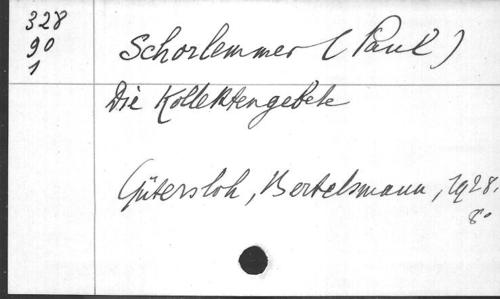 328
90
1
Schorlemmer (Paul)
Die Kollektengebete
Gütersloh, Bertelsmann, 1928.
8°